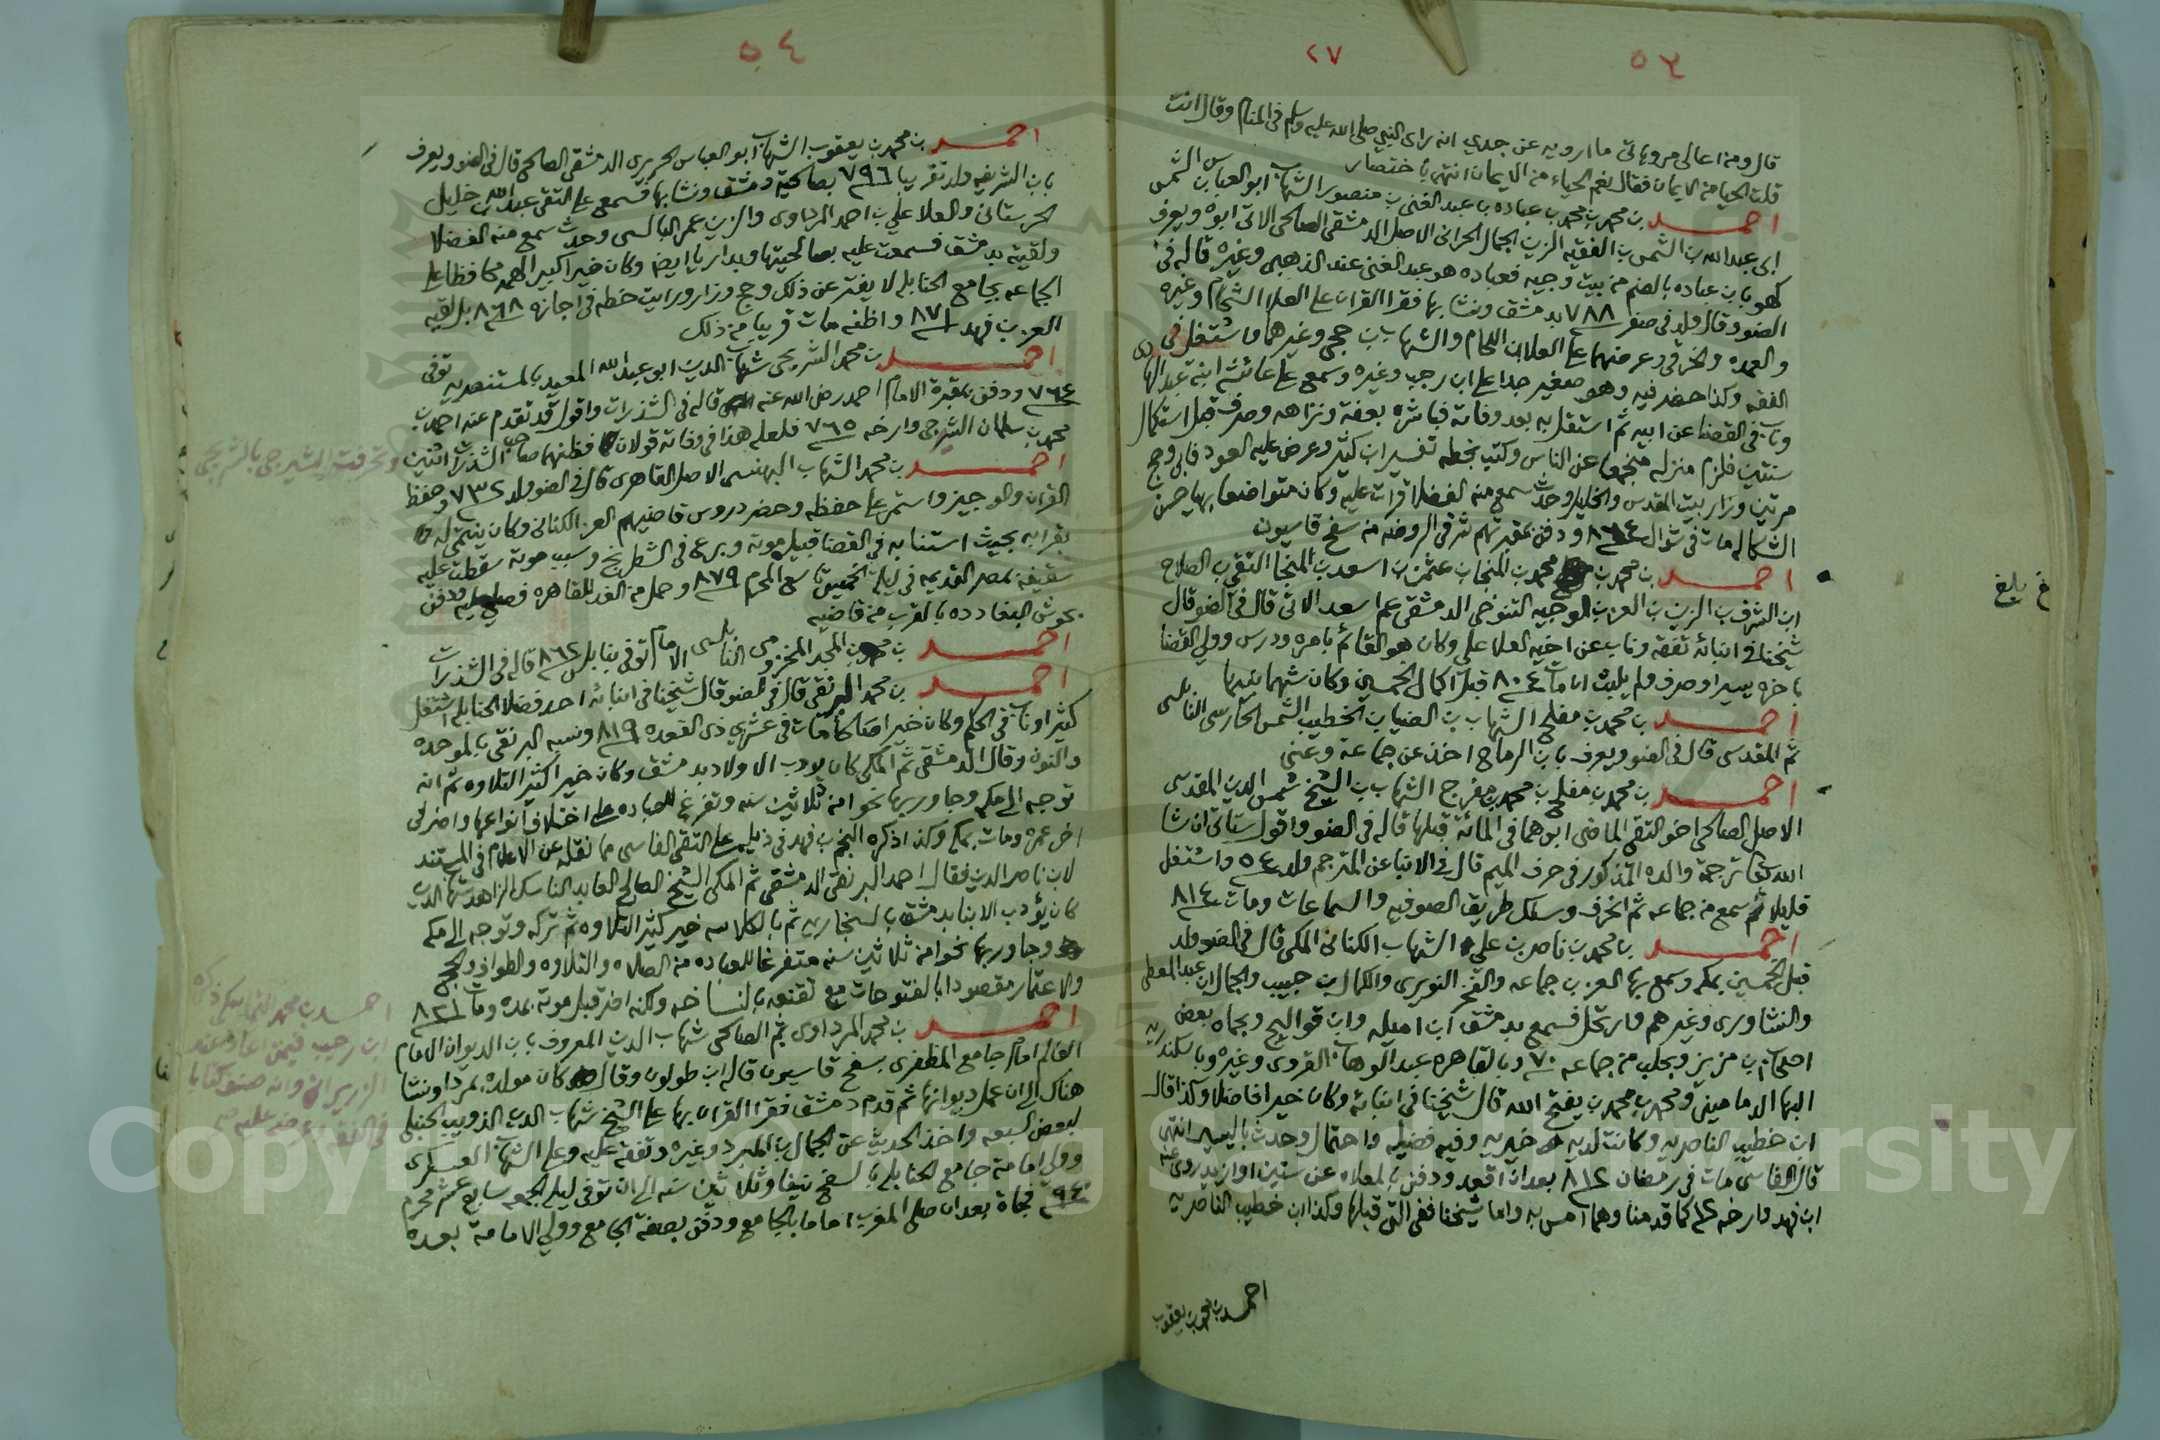 ٥٣
٢٧
قال ومن اعالي مروياتي ما ارويه عن جدي انه راى النبي صلى الله عليه وسلم في المنام وقال انت
قلت الحيا من الايمان فقال نعم الحياء من الايمان انتهى باختصار
احمد بن محمد بن محمد بن عباده بن عبد الغني بن منصور الشهاب ابو العباس بن الشمس
ابي عبد الله بن الشمس بن الفقيه الزين الجمال الحراني الاصل الدمشقي الصالحي الاتي ابوه ويعرف
كهو بابن عباده بالضم من بيت وجيه فعباده هو عبد الغني عند الذهبي وغيره قاله في
الضوو وقال ولد في صفر ٧٨٨ بدمشق ونشا بها فقرا القران على العلا الشحام وغيره
والعمده والخرقي وعرضهما على العلا بن اللحام والشهاب بن حجي وغيرهما واشتغل في
الفقه وكذا حضر فيه وهو صغير جدا على ابن رجب وغيره وسمع على عائشه ابنة عبد الهادي
وناب في القضا عن ابيه ثم استقل به بعد وفاته فباشره بعفة ونزاهه وصرف قبل استكمال
سنتين فلزم منزله منجمعا عن الناس وكتب بخطه تفسير ابن كثير وعرض عليه العود فابى وحج
مرتين وزار بيت المقدس والخليل وحدث سمع منه الفضلا قرات عليه وكان متواضعا بهيا حسن
الشكاله مات في شوال ٨٦٤ ودفن بمقبرتهم شرقي الروضه من سفح قاسيون
احمد بن محمد بن محمد بن المنجا بن عثمن بن اسعد بن المنجا التقي بن الصلاح
ابن الشرف بن الزين بن العز بن الوجيه التنوخي الدمشقي عم اسعد الاتي قال في الضو قال
شيخنا في انبائه تفقه وناب عن اخيه العلا علي وكان هو القائم بامره ودرس وولي القضا
باخره يسيرا وصرف ولم يلبث ان مات ٨٠٤ قبل اكمال الخمسين وكان شهما نبيها
احمد بن محمد بن مفلح الشهاب بن الضيا بن الخطيب الشمس الحارسي النابلسي
ثم المقدسي قال في الضو ويعرف بابن الرماح اخذ عن جماعة وعني
احمد بن محمد بن مفلح بن محمد بن مفرج الشهاب بن الشيخ شمس الدين المقدسي
الاصل الصالحي اخو التقي الماضي ابوهما في المائة قبلها قاله في الضو واقول ستاتي ان شا
الله تعالى ترجمة والده المذكور في حرف الميم قال في الانبا عن المترجم ولد ٥٤ واشتغل
قليلا ثم سمع من جماعه ثم انحرف وسلك طريق الصوفيه والسماعات ومات ٨١٤
احمد بن محمد بن ناصر بن علي الشهاب الكناني المكي قال في الضو ولد
قبل الخمسين بمكه وسمع بها العز بن جماعه والفخر النويري والكمال بن حبيب والجمال ابن عبد المعطي
والنشاوري وغيرهم وارتحل فسمع بدمشق ابن اميله وابن قواليح وبحماه بعض
اصحاب بن مزيز وبحلب من جماعه ٧٠ وبالقاهره عبد الوهاب القروي وغيره وباسكندريه
البها الدماميني ومحمد بن محمد بن يفتح الله قال شيخنا في انبائه وكان خيرا فاضلا وكذا قال
ابن خطيب الناصريه وكانت لديه خيريه وفيه فضيله واحتمال وحدث باليسير انتهى
قال الفاسي مات في رمضان ٨١٢ بعد ان اقعد ودفن بالمعلاه عن ستين او ازيد روى عنه
ابن فهد وارخه ١٢ كما قدمنا وهما امس به واما شيخنا ففي التي قبلها وكذا ابن خطيب الناصريه
احمد بن محمد بن يعقوب
بلغ
٥٤
احمد بن محمد بن يعقوب الشهاب ابو العباس الحريري الدمشقي الصالحي قال في الضوو يعرف
بابن الشريفه ولد تقريبا ٧٩٦ بصالحية دمشق ونشا بها فسمع على التقي عبد الله بن خليل
الحرستاني والعلا علي بن احمد المرداوي والزين عمر البالسي وحدث سمع منه الفضلا
ولقيته بدمشق فسمعت عليه بصالحيتها وبداريا ايضا وكان خيرا كبير الهمه محافظا على
الجماعه بجامع الحنابله لا يفتر عن ذلك وحج وزار ورايت خطه في اجازه ٨٦٨ بل لقيه
العز بن فهد ٨٧١ واظنه مات قريبا من ذلك
احمد بن محمد الشريحي شهاب الدين ابو عبد الله المعيد بالمستنصريه توفي
٧٦٤ ودفن بمقبرة الامام احمد رضي الله عنه قاله في الشذرات واقول قد تقدم عنه احمد بن
محمد بن سلمان الشيرجي وارخه ٧٦٥ فلعله هذا في وفاته قولان فظنهما صاحب الشذرات اثنين
وتحرفت الشيرجي بالشريحي
احمد بن محمد الشهاب البهنسي الاصل القاهري قال في الضو ولد ٧٣٢ وحفظ
القران والوجيز واستمر على حفظه وحضر دروس قاضيهم العز الكناني وكان ينتمي له
بقرابه بحيث استنابه في القضا قبيل موته وبرع في الشطرنج وسبب موته سقطت عليه
سقيفة بمصر القديمه في ليلة الخميس تاسع المحرم ٨٧٩ وحمل من الغد للقاهره فصلي عليه ودفن
بحوش البغادده بالقرب من قاضيه
احمد بن محمد بن المجد المخزومي النابلسي الامام توفي بنابلس ٨٦٢ قاله في الشذرات
احمد بن محمد البرنقي قال في الضو قال شيخنا في انبائه احد فضلا الحنابله اشتغل
كثيرا وناب في الحكم وكان خيرا صالحا مات في عشري ذي القعده ٨١٩ ونسبه البرنقي بالموحده
والنون وقال الدمشقي ثم المكي كان يودب الاولاد بدمشق وكان خيرا كثير التلاوه ثم انه
توجه الى مكه وجاور بها نحوا من ثلاثين سنه وتفرغ للعباده على اختلاف انواعها واضر في
اخر عمره ومات بمكه وكذا ذكره النجم بن فهد في ذيله على التقي الفاسي مما نقله عن الاعلام في المستند
لابن ناصر الدين فقال احمد البرنقي الدمشقي ثم المكي الشيخ الصالح العابد الناسك الزاهد شهاب الدين
كان يؤدب الابنا بدمشق بالسنجاريه ثم بالكلاسه خير كثير التلاوه ثم تركه وتوجه الى مكه
وجاور بها نحوا من ثلاثين سنه متفرغا للعباده من الصلاه والتلاوه والطواف والحج
والاعتمار مقصودا بالفتوحات مع تقنعه بالنساخه ولكنه اضر قبل موته بمده ومات ٨٢١
احمد بن محمد المرداوي ثم الصالحي شهاب الدين المعروف بابن الديوان الامام
العالم امام جامع المظفري بسفح قاسيون قاله ابن طولون وقال كان مولده بمردا ونشا
هناك الى ان عمل ديوانها ثم قدم دمشق فقرا القران بها على الشيخ شهاب الدين الذويب الحنبلي
لبعض السبعه واخذ الحديث عن الجمال بن المبرد وغيره وتفقه عليه وعلى الشهاب العسكري
وولي امامة جامع الحنابله بالسفح نيفا وثلاثين سنه الى ان توفي ليلة الجمعه سابع عشر محرم
٩٤٠ فجاة بعد ان صلى المغرب اماما بالجامع ودفن بصفة الجامع وولي الامامة بعده
احمد بن محمد
ابن رجب فيمن
الزريراني وانه صنف كتابا
في الفقه
Copyright © King Saud University